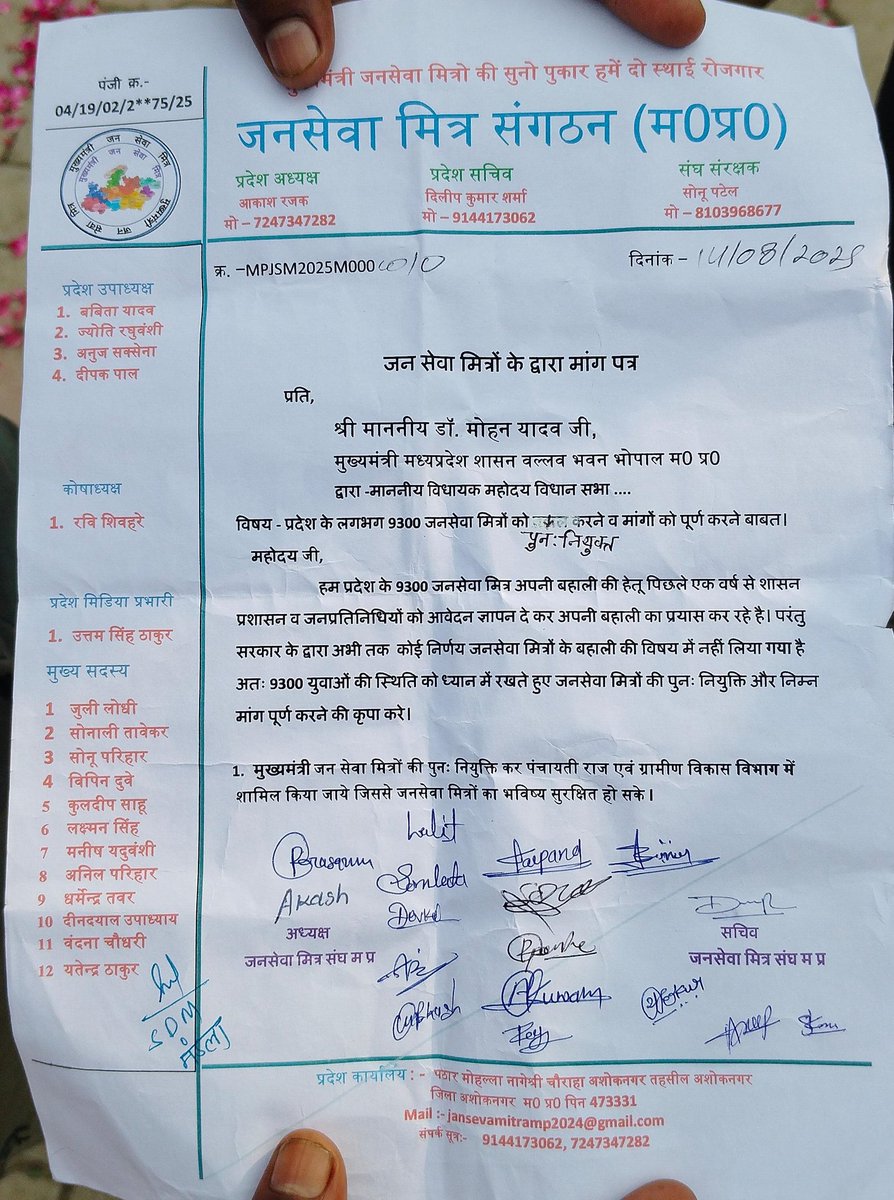 पंजी क्र.-
04/19/02/2**75/25
मुख्यमंत्री जन सेवा मित्र
मुख्यमंत्री जन सेवा मित्र
मंत्री जनसेवा मित्रो की सुनो पुकार हमें दो स्थाई रोजगार
जनसेवा मित्र संगठन (म0प्र0)
प्रदेश अध्यक्ष
आकाश रजक
मो – 7247347282
प्रदेश सचिव
दिलीप कुमार शर्मा
मो – 9144173062
संघ संरक्षक
सोनू पटेल
मो – 8103968677
क्र. –MPJSM2025M000
दिनांक - 14/08/2025
प्रदेश उपाध्यक्ष
1. बबिता यादव
2. ज्योति रघुवंशी
3. अनुज सक्सेना
4. दीपक पाल
कोषाध्यक्ष
1. रवि शिवहरे
प्रदेश मिडिया प्रभारी
1. उत्तम सिंह ठाकुर
मुख्य सदस्य
1 जुली लोधी
2 सोनाली तावेकर
3 सोनू परिहार
4 विपिन दुवे
5 कुलदीप साहू
6 लक्ष्मन सिंह
7 मनीष यदुवंशी
8 अनिल परिहार
9 धर्मेन्द्र तवर
10 दीनदयाल उपाध्याय
11 वंदना चौधरी
12 यतेन्द्र ठाकुर
SDM
मंडला
जन सेवा मित्रों के द्वारा मांग पत्र
प्रति,
श्री माननीय डॉ. मोहन यादव जी,
मुख्यमंत्री मध्यप्रदेश शासन वल्लव भवन भोपाल म0 प्र0
द्वारा -माननीय विधायक महोदय विधान सभा ....
विषय - प्रदेश के लगभग 9300 जनसेवा मित्रों को करने व मांगों को पूर्ण करने बाबत।
पुनः नियुक्त
महोदय जी,
हम प्रदेश के 9300 जनसेवा मित्र अपनी बहाली की हेतू पिछले एक वर्ष से शासन
प्रशासन व जनप्रतिनिधियों को आवेदन ज्ञापन दे कर अपनी बहाली का प्रयास कर रहे है। परंतु
सरकार के द्वारा अभी तक कोई निर्णय जनसेवा मित्रों के बहाली की विषय में नहीं लिया गया है
अतः 9300 युवाओं की स्थिति को ध्यान में रखते हुए जनसेवा मित्रों की पुनः नियुक्ति और निम्न
मांग पूर्ण करने की कृपा करे।
1. मुख्यमंत्री जन सेवा मित्रों की पुनः नियुक्ति कर पंचायती राज एवं ग्रामीण विकास विभाग में
शामिल किया जाये जिससे जनसेवा मित्रों का भविष्य सुरक्षित हो सके।
Lalit
Akash
अध्यक्ष
जनसेवा मित्र संघ म प्र
सचिव
जनसेवा मित्र संघ म प्र
प्रदेश कार्यालय : - पठार मोहल्ला नागेश्री चौराहा अशोकनगर तहसील अशोकनगर
जिला अशोकनगर म0 प्र0 पिन 473331
Mail :- jansevamitramp2024@gmail.com
संपर्क सूत्र:- 9144173062, 7247347282